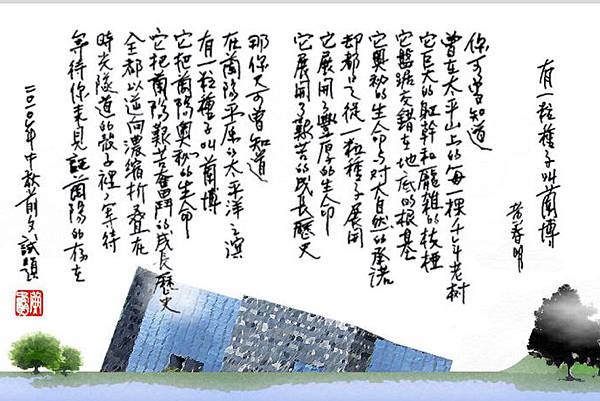 有一粒種子叫蘭博
黃春明
你可曾知道
曾在太平山上的每一棵千年老樹
它巨大的軀幹和龐雜的枝椏
它盤踞交錯在地底的根基
它奧秘的生命与對大自然的承諾
却都只從一粒種子展開
它展開了豐厚的生命
它展開了艱苦的成長歷史
那你又可曾知道
在蘭陽平原的太平洋之濱
有一粒種子叫蘭博
它把蘭陽奧秘的生命
它把蘭陽艱苦奮鬥的成長歷史
全都以逆向濃縮折疊在
時光隧道的殼子裡，等待
等待你來見証蘭陽的存在
二〇一〇年中秋前夕 試題